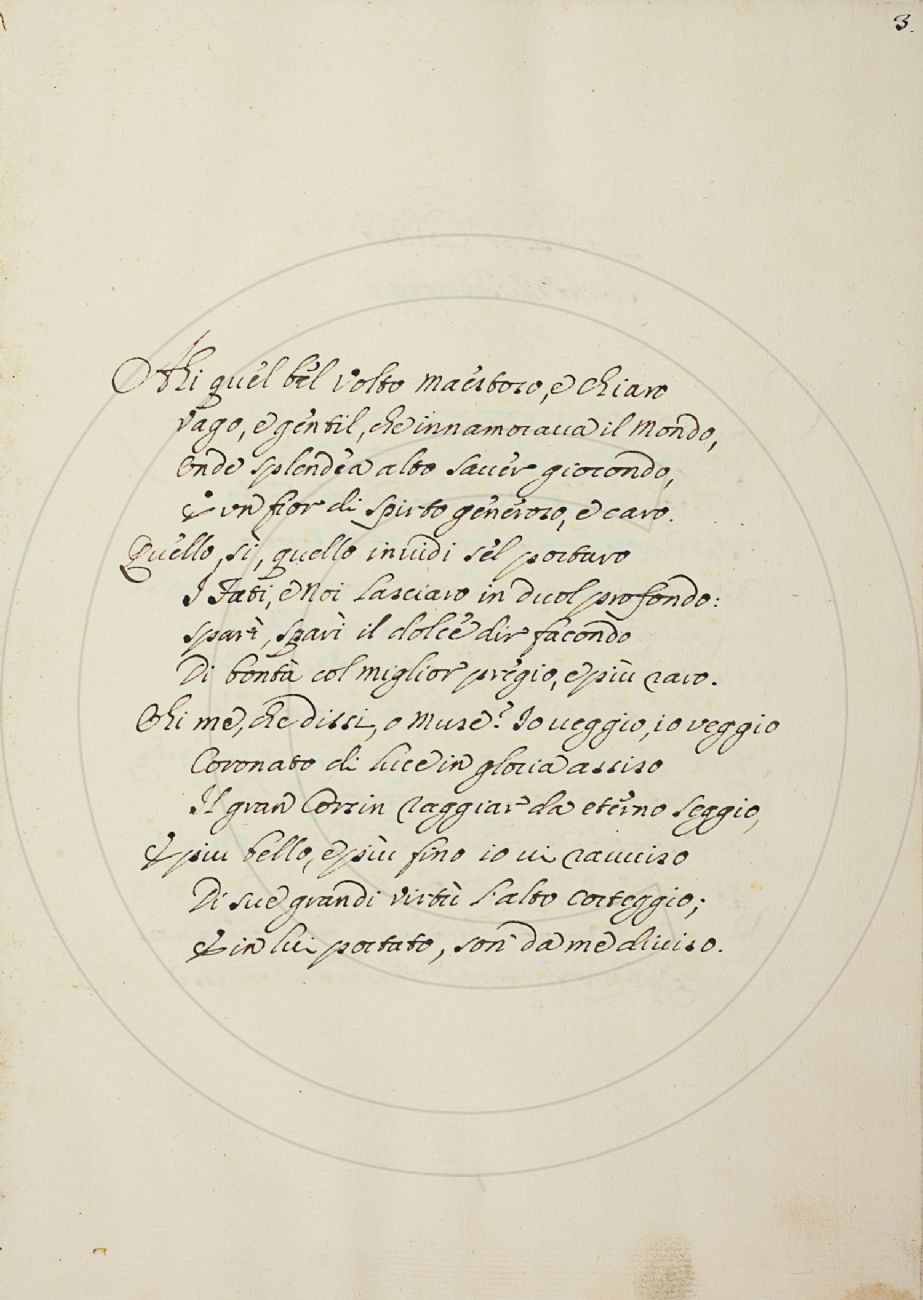 3.
Ahi quel bel volto maestoso, e chiaro
Vago, e gentil, che innamoraua il Mondo,
Onde splendea alto sauer giocondo,
E vn fior di spirto generoso, e caro.
Quello, sì, quello inuidi sel portaro
I Fati, e Noi lasciaro in duol profondo:
Sparì, sparì il dolce dir facondo
Di bontà col miglior pregio, e più raro.
Ohi me, che dissi, o Muse? Io ueggio, io veggio
Coronato di luce in gloria assiso
Il gran Corsin raggiar da eterno seggio,
E piu bello, e più fino io ui rauuiso
Di sue grandi virtù l'alto corteggio;
E in lui portato, son da me diuiso.